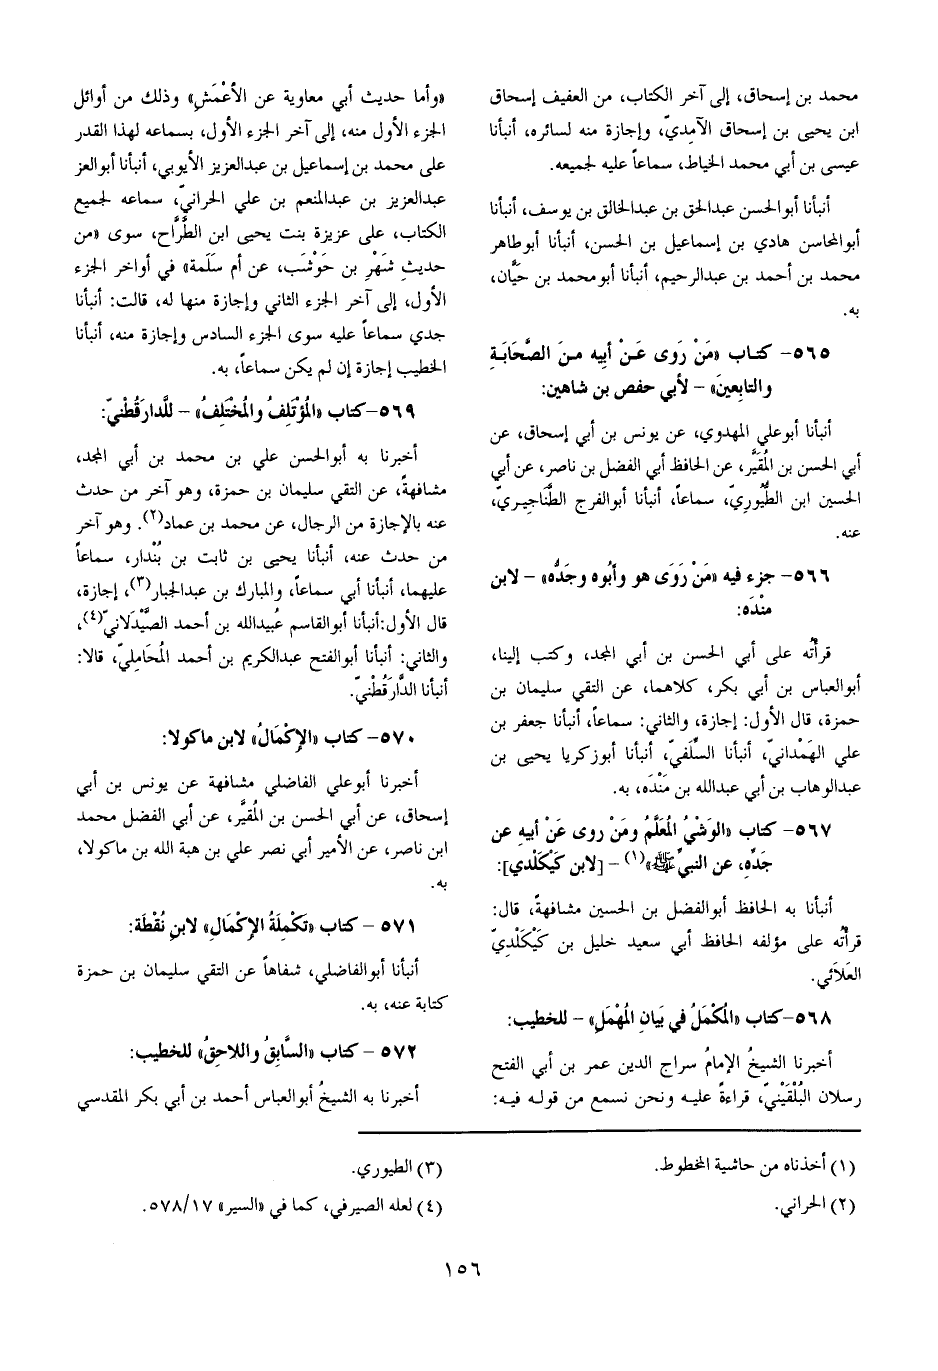 محمد بن إسحاق، إلى آخر الكتاب، من العفيف إسحاق
ابن يحيى بن إسحاق الآمِديّ، وإجازة منه لسائره، أنبأنا
عيسى بن أبي محمد الخياط، سماعاً عليه لجميعه.
أنبأنا أبوالحسن عبدالحق بن عبدالخالق بن يوسف، أنبأنا
أبوالمحاسن هادي بن إسماعيل بن الحسن، أنبأنا أبوطاهر
محمد بن أحمد بن عبدالرحيم، أنبأنا أبومحمد بن حَيَّان،
به.
٥٦٥- كتاب «مَنْ رَوى عَنْ أبيه منَ الصَّحَابَةِ
والتابِعينَ» – لأبي حفص بن شاهين:
أنبأنا أبوعلي المهدوي، عن يونس بن أبي إسحاق، عن
أبي الحسن بن المُقَيَّر، عن الحافظ أبي الفضل بن ناصر، عن أبي
الحسين ابن الطُّيُوريّ، سماعاً، أنبأنا أبوالفرج الطَّنَاجِيـريّ،
عنه.
٥٦٦- جزء فيه «مَنْ رَوَى هو وأبُوه وجَدُّه» – لابن
منْدَه:
قرأتُه على أبي الحسن بن أبي المجد، وكتب إلينا،
أبوالعباس بن أبي بكر، كلاهما، عن التقي سليمان بن
حمزة، قال الأول: إجازة، والثاني: سماعاً، أنبأنا جعفر بن
علي الهَمْدانيّ، أنبأنا السِّلَفيّ، أنبأنا أبوزكريا يحيى بن
عبدالوهاب بن أبي عبدالله بن مَنْدَه، به.
٥٦٧- كتاب «الوَشْيُ المُعَلَّمُ ومَنْ روى عَنْ أبيهِ عن
جَدِّهِ، عن النبيِّ ﷺ»(١) – [لابن كَيْكَلْدي]:
أنبأنا به الحافظ أبوالفضل بن الحسين مشافهةً، قال:
قرأتُه على مؤلفه الحافظ أبي سعيد خليل بن كَيْكَلْدِيّ
العَلاَئي.
٥٦٨-كتاب «المُكْمَلُ في بَيان المُهْمَلِ» – للخطيب:
أخبرنا الشيخُ الإمامُ سراج الدين عمر بن أبي الفتح
رسلان البُلْقَيْنيّ، قراءةً عليه ونحن نسمع من قوله فيه:
«وأما حديث أبي معاوية عن الأعْمَشِ» وذلك من أوائل
الجزء الأول منه، إلى آخر الجزء الأول، بسماعه لهذا القدر
على محمد بن إسماعيل بن عبدالعزيز الأيوبي، أنبأنا أبوالعز
عبدالعزيز بن عبدالمنعم بن علي الحرانيّ، سماعه لجميع
الكتاب، على عزيزة بنت يحيى ابن الطَّرَّاح، سوى «من
حديثِ شَهْرِ بن حَوْشَب، عن أم سَلَمة» في أواخر الجزء
الأول، إلى آخر الجزء الثاني وإجازة منها له، قالت: أنبأنا
جدي سماعاً عليه سوى الجزء السادس وإجازة منه، أنبأنا
الخطيب إجازة إن لم يكن سماعاً، به.
٥٦٩-كتاب «المُؤْتَلِفُ والمُخْتَلِفُ» – للَّدارَقُطْنيّ:
أخبرنا به أبوالحسن علي بن محمد بن أبي المجد،
مشافهةً، عن التقي سليمان بن حمزة، وهو آخر من حدث
عنه بالإجازة من الرجال، عن محمد بن عماد(٢). وهو آخر
من حدث عنه، أنبأنا يحيى بن ثابت بن بُنْدار، سماعاً
عليهما، أنبأنا أبي سماعاً، والمبارك بن عبدالجبار(٣)، إجازة،
قال الأول:أنبأنا أبوالقاسم عُبيدالله بن أحمد الصَّيْدَلانيّ(٤)،
والثاني: أنبأنا أبوالفتح عبدالكريم بن أحمد المُحَامِليّ، قالا:
أنبأنا الدَّارَقُطْنيّ.
٥٧٠- كتاب «الإكْمَالُ» لابن ماكولا:
أخبرنا أبوعلي الفاضلي مشافهة عن يونس بن أبي
إسحاق، عن أبي الحسن بن المُقيَّر، عن أبي الفضل محمد
ابن ناصر، عن الأمير أبي نصر علي بن هبة الله بن ماكولا،
به.
٥٧١ - كتاب «تَكْمِلَةُ الإكْمَالِ» لابنِ نُقْطَة:
أنبأنا أبوالفاضلي، شفاهاً عن التقي سليمان بن حمزة
كتابة عنه، به.
٥٧٢ - كتاب «السَّابِقُ واللاحِقُ» للخطيب:
أخبرنا به الشيخُ أبوالعباس أحمد بن أبي بكر المقدسي
(١) أخذناه من حاشية المخطوط.
(٢) الحراني.
(٣) الطيوري.
(٤) لعله الصيرفي، كما في «السير» ٥٧٨/١٧.
١٥٦